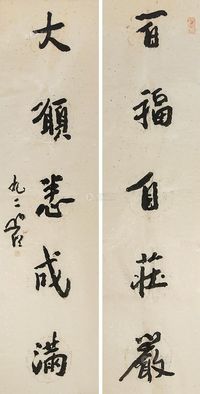 百福自莊嚴
大願悉成滿
九二叟